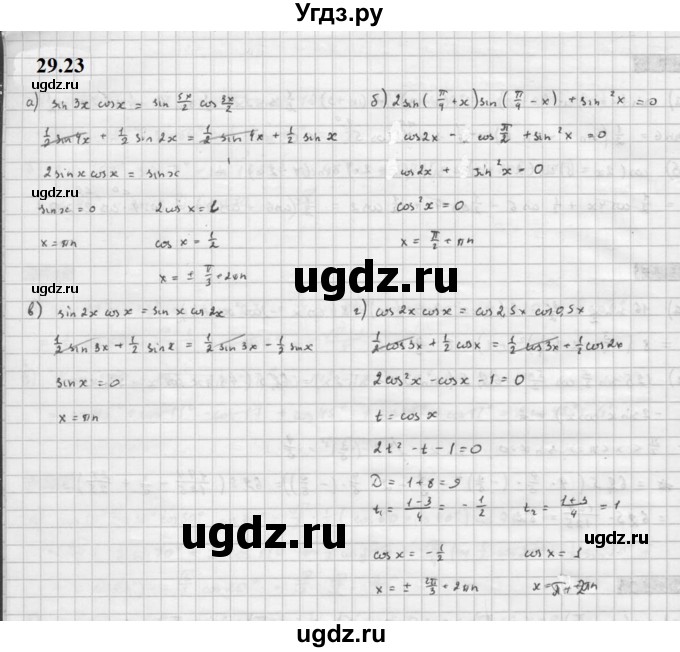 Угдз.ру
29.23
а) sin 3x cos x = sin 5x/2 cos 3x/2
1/2 sin 4x + 1/2 sin 2x = 1/2 sin 4x + 1/2 sin x
2 sin x cos x = sin x
sin x = 0 2 cos x = 1
x = πn cos x = 1/2
x = ± π/3 + 2πn
б) 2 sin(π/4 + x) sin(π/4 − x) + sin²x = 0
cos 2x − cos π/2 + sin²x = 0
cos 2x + sin²x = 0
cos²x = 0
x = π/2 + πn
ugdz.ru
в) sin 2x cos x = sin x cos 2x
1/2 sin 3x + 1/2 sin x = 1/2 sin 3x − 1/2 sin x
sin x = 0
x = πn
г) cos 2x cos x = cos 2,5x cos 0,5x
1/2 cos 3x + 1/2 cos x = 1/2 cos 3x + 1/2 cos 2x
2cos²x − cos x − 1 = 0
t = cos x
2t² − t − 1 = 0
D = 1 + 8 = 9
t₁ = (1−3)/4 = −1/2 t₂ = (1+3)/4 = 1
cos x = −1/2 cos x = 1
x = ± 2π/3 + 2πn
ugdz.ru
ugdz.ru